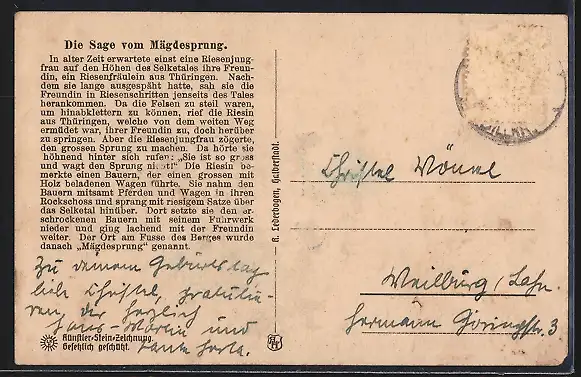 Die Sage vom Mägdesprung.
In alter Zeit erwartete einst eine Riesenjung-
frau auf den Höhen des Selketales ihre Freun-
din, ein Riesenfräulein aus Thüringen. Nach-
dem sie lange ausgespäht hatte, sah sie die
Freundin in Riesenschritten jenseits des Tales
herankommen. Da die Felsen zu steil waren,
um hinabklettern zu können, rief die Riesin
aus Thüringen, welche von dem weiten Weg
ermüdet war, ihrer Freundin zu, doch herüber
zu springen. Aber die Riesenjungfrau zögerte,
den grossen Sprung zu machen. Da hörte sie
höhnend hinter sich rufen: „Sie ist so gross
und wagt den Sprung nicht!" Die Riesin be-
merkte einen Bauern, der einen grossen mit
Holz beladenen Wagen führte. Sie nahm den
Bauern mitsamt Pferden und Wagen in ihren
Rockschoss und sprang mit riesigem Satze über
das Selketal hinüber. Dort setzte sie den er-
schrockenen Bauern mit seinem Fuhrwerk
nieder und ging lachend mit der Freundin
weiter. Der Ort am Fusse des Berges wurde
danach „Mägdesprung" genannt.
Zu deinem Geburtstag
liebe Christel, gratulie-
ren, dir herzlich
Hans-Martin und
Tante Herta.
Künstler-Stein-Zeichnung.
Gesetzlich geschützt.
R. Lederbogen, Halberstadt.
Christel
Weilburg, Lahn.
Hermann Göringstr. 3